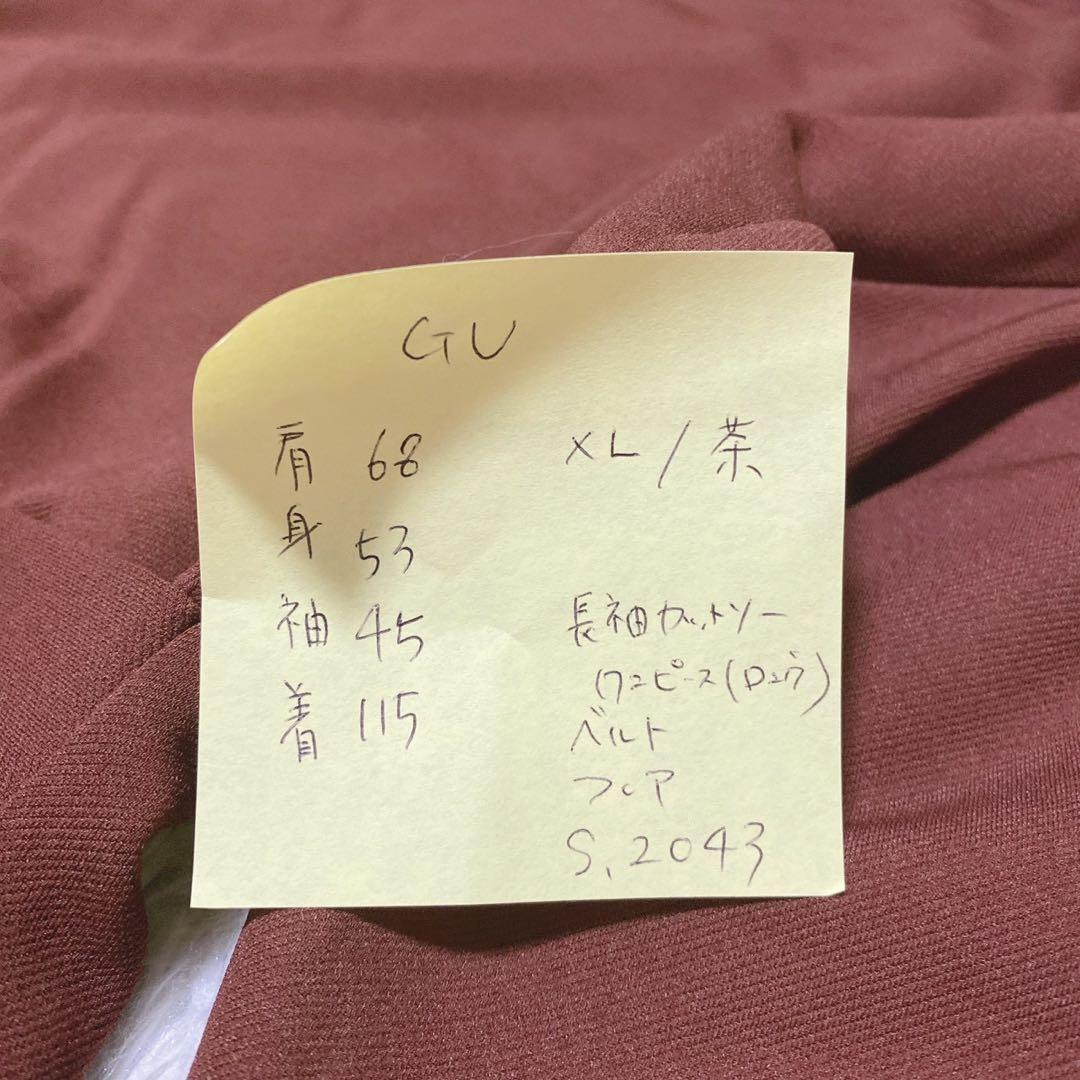 GU
肩 68
身 53
袖 45
着 115
XL/茶
長袖カットソー
ワンピース(ロング)
ベルト
フレア
S.2043